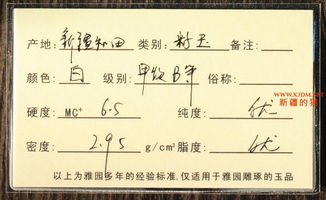 产地: 新疆和田 类别: 籽玉 备注:
WWW.XJDM.NE
新疆的狼
颜色: 白 级别: 甲级B等 俗称:
硬度: MC⁺ 6.5 纯度: 优
密度: 2.95 g/cm³ 脂度: 优
以上为雅园多年的经验标准,仅适用于雅园雕琢的玉品